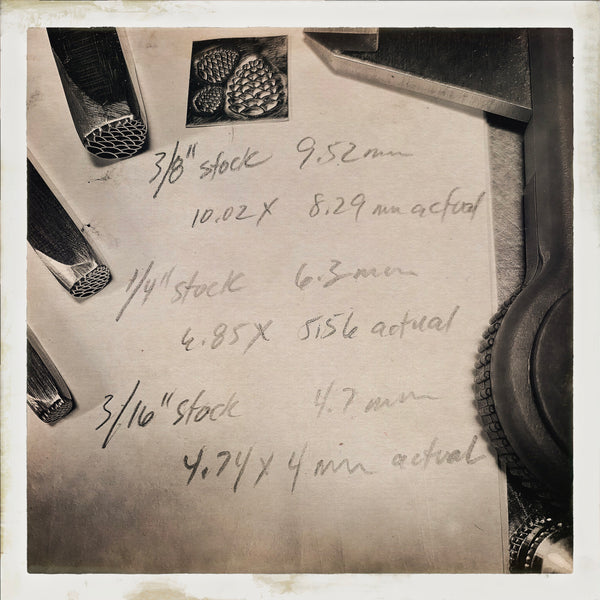 3/8" stock 9.52 mm
10.02 X 8.29 mm actual
1/4" stock 6.3 mm
6.85 X 5.56 actual
3/16" stock 4.7 mm
4.74 X 4 mm actual